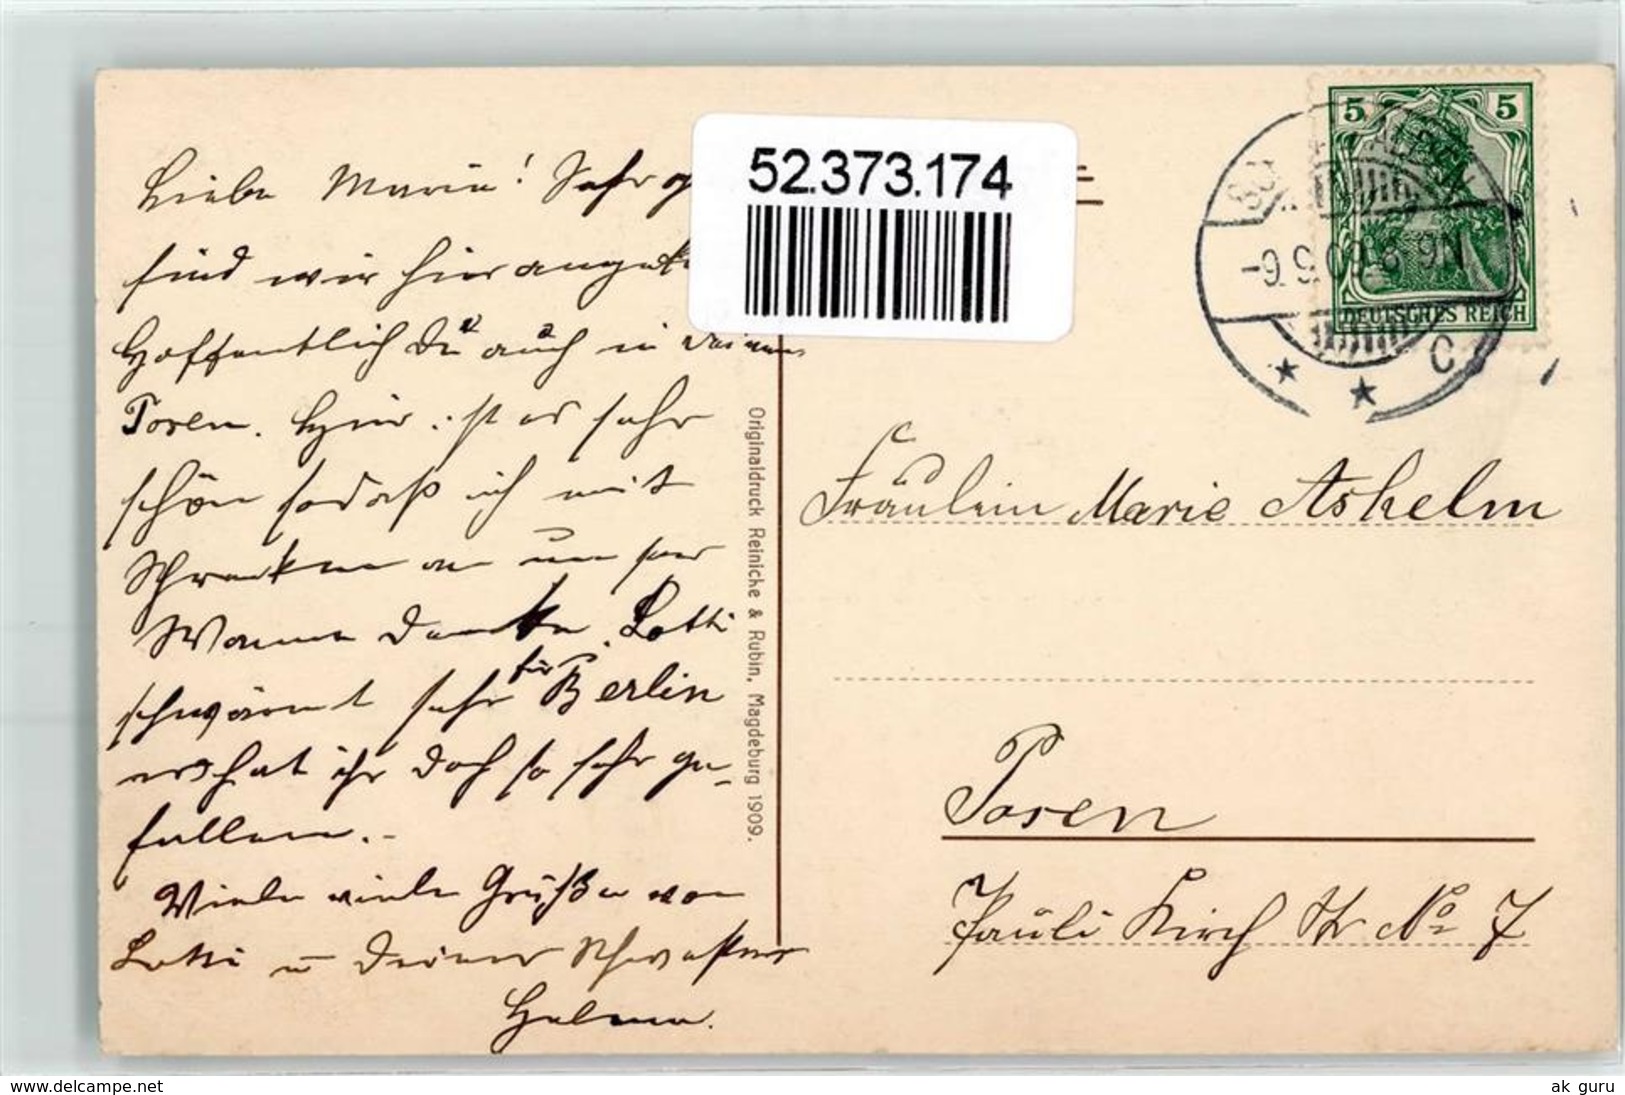 52.373.174
5 5
DEUTSCHES REICH
-9.9.09.8-9N
C
Liebe Marie! Sehr g
sind wir hier angek
Hoffentlich Du auch in deinem
Posen. Hier ist es sehr
schön sodaß ich mit
Schrecken an
Wanne denke. Lotti
schwärmt sehr für Berlin
es hat ihr doch so sehr ge-
fallen.-
Viele viele Grüße von
Lotti u deiner Schwester
Helma.
Originaldruck Reinicke & Rubin, Magdeburg 1909.
Fräulein Marie Askelm
Posen
Pauli Kirch Str No 7
www.delcampe.net
ak guru